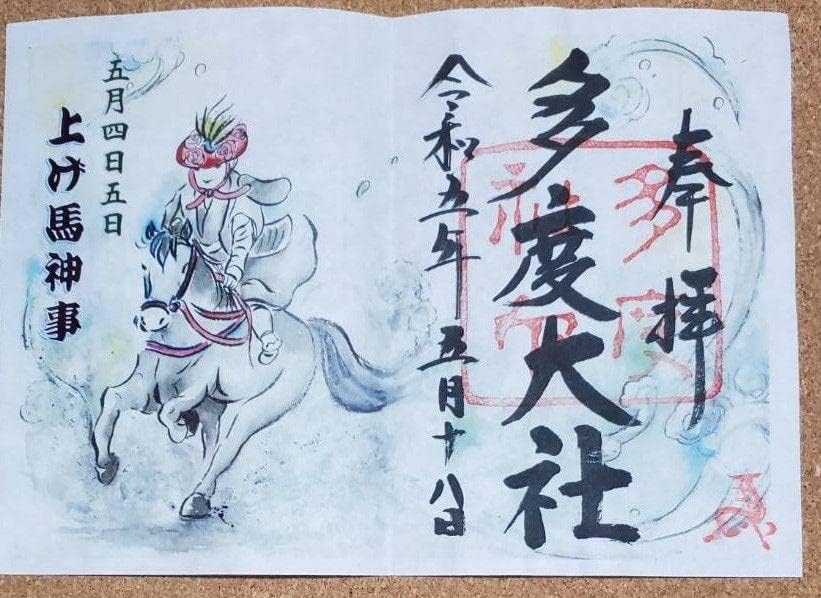 奉拝
多度大社
令和五年五月十八日
五月四日五日
上げ馬神事